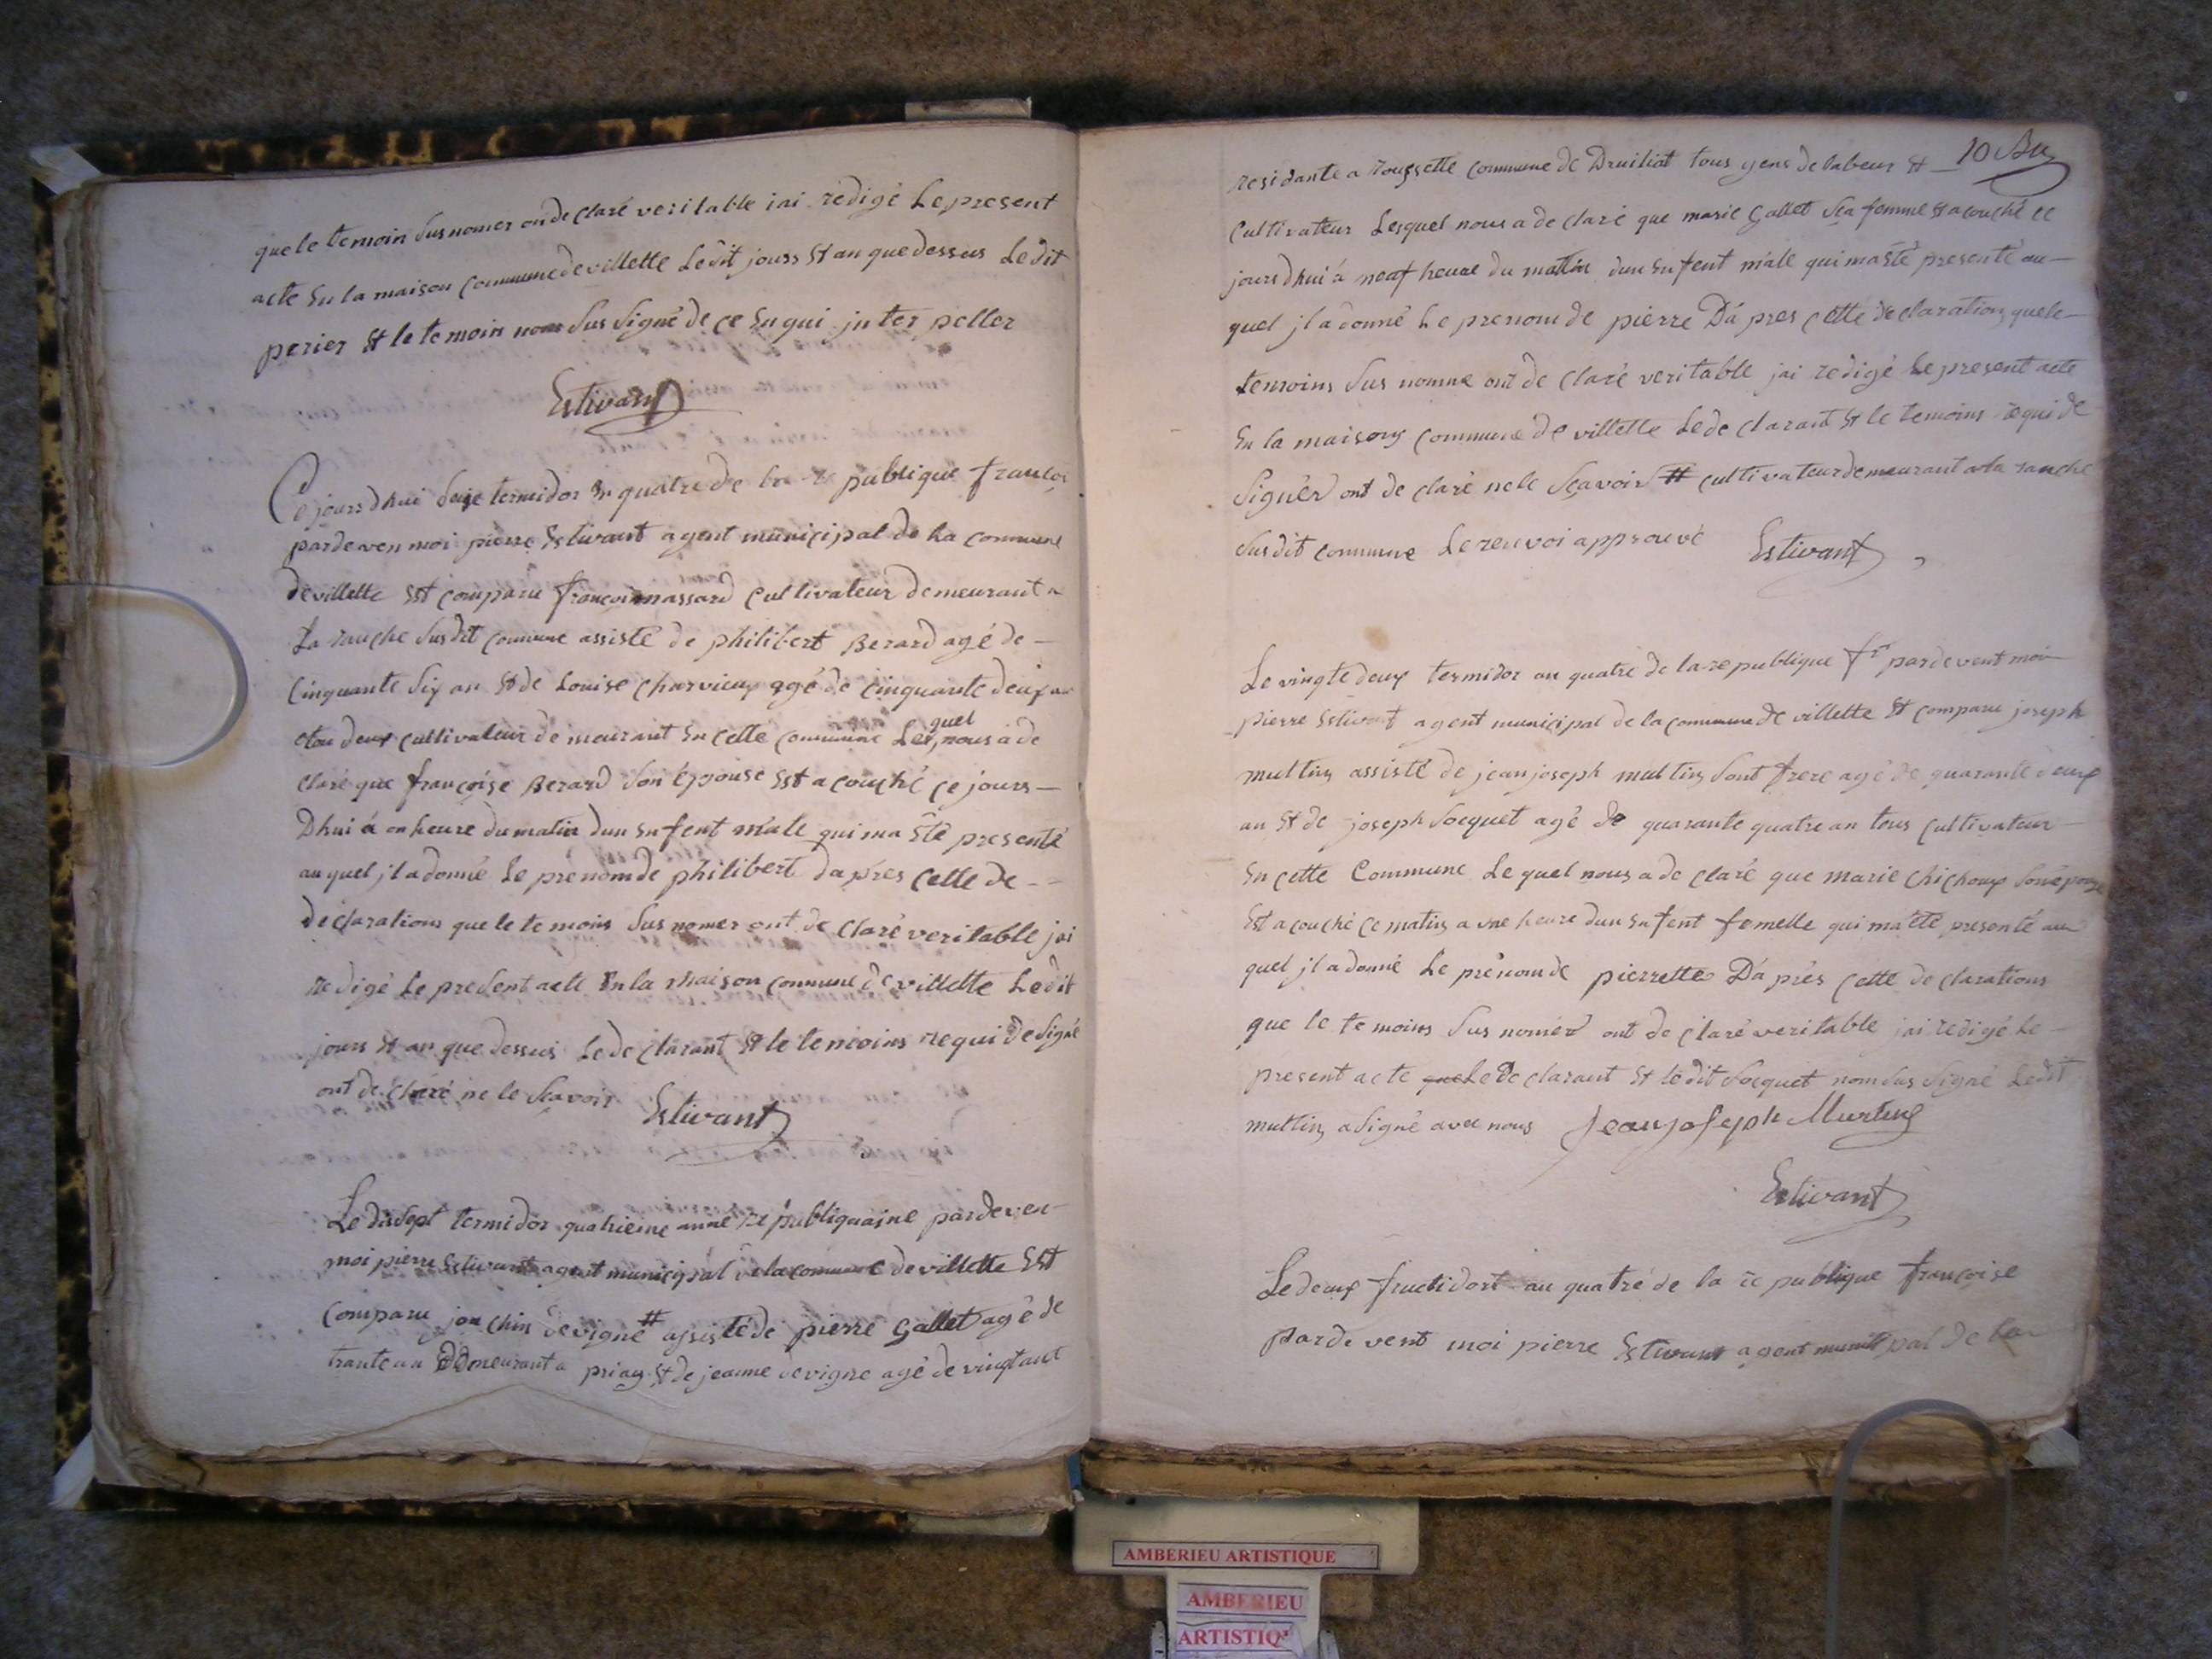 que le temoin sus nomer on de claré veritable iai redigé Le present
acte En la maison commune de villette Ledit jours Et an que dessus Ledit
perier Et le temoin nom sus signé de ce En qui jn ter peller
Estivant
Ce jours dhui seize termidor en quatre de la re publique françoi
par deven moi pierre Estivant agent municipal de La commune
de villette Est comparu françoi massard cultivateur demeurant a
La ranche sus dit comune assisté de philibert Berard agé de -
Cinquante six an Et de Louise charvieux agé de cinquante deux an
tou deux cultivateur de meurant En cette commune Lesquel nous a de
claré que françoise Berard son épouse Est a couché ce jours -
Dhui á on heure du matin dun Enfent mâle qui ma Eté presenté
au quel jl a donné Le prenom de philibert da prés cette de -
déclarations que le te moins sus nomer ont de claré veritable jai
re digé Le present acte En la maison commune de villette Ledit
jours Et an que dessus Le de clarant Et le temoins requi de signé
ont dé claré ne le scavoir Estivant
Le disept termidor quatrieme anné re publiquaine pardeven
moi pierre Estivant agent municipal de la commune de villette Est
comparu joachin devigne # assisté de pierre Gallet agé de
trante an Demeurant a priay Et de jeanne devigne agé de vingt ant
residante a rousette commune de Druiliat tous gens de labeur Et - 10
Cultivateur Lesquel nous a de claré que marie Gallet sa femme Et a couché ce
jours dhui á neaf heure du mattin dun Enfent mâle qui ma Eté presenté au -
quel jl a donné Le prenom de pierre Dá pres cette de claration que le -
temoins sus nomme ont de claré veritable jai redigé Le present acte
En la maison commune de villette Le de clarant Et le temoins requi de
signér ont de claré ne le scavoir # cultivateur demeurant a la ranche
sus dit commune Le renvoi approuvé Estivant
Le vingte deux termidor an quatre de la republique fr par devent moi
pierre Estivant agent municipal de la commune de villette Et comparu joseph
multin assisté de jean joseph multin sont frere agé de quarante deux
an Et de joseph socquet agé de quarante quatre an tous cultivateur
En cette Commune Le quel nous a de claré que marie chichoux son épouse
Est a couché ce matin a une heure dun Enfent femelle qui ma été presenté au
quel jl a donné Le prénom de pierrette Dá prés cette de clarations
que le te moins sus nomér ont de claré veritable jai redigé Le -
present acte que Le De clarant Et lédit socquet nom sus signé Ledit
multin a signé avec nous Jean joseph Murtin
Estivant
Le deux fructidort an quatre de la re publique françoise
par de vent moi pierre Estivant agent municipal de la
AMBERIEU ARTISTIQUE
AMBERIEU
ARTISTIQ